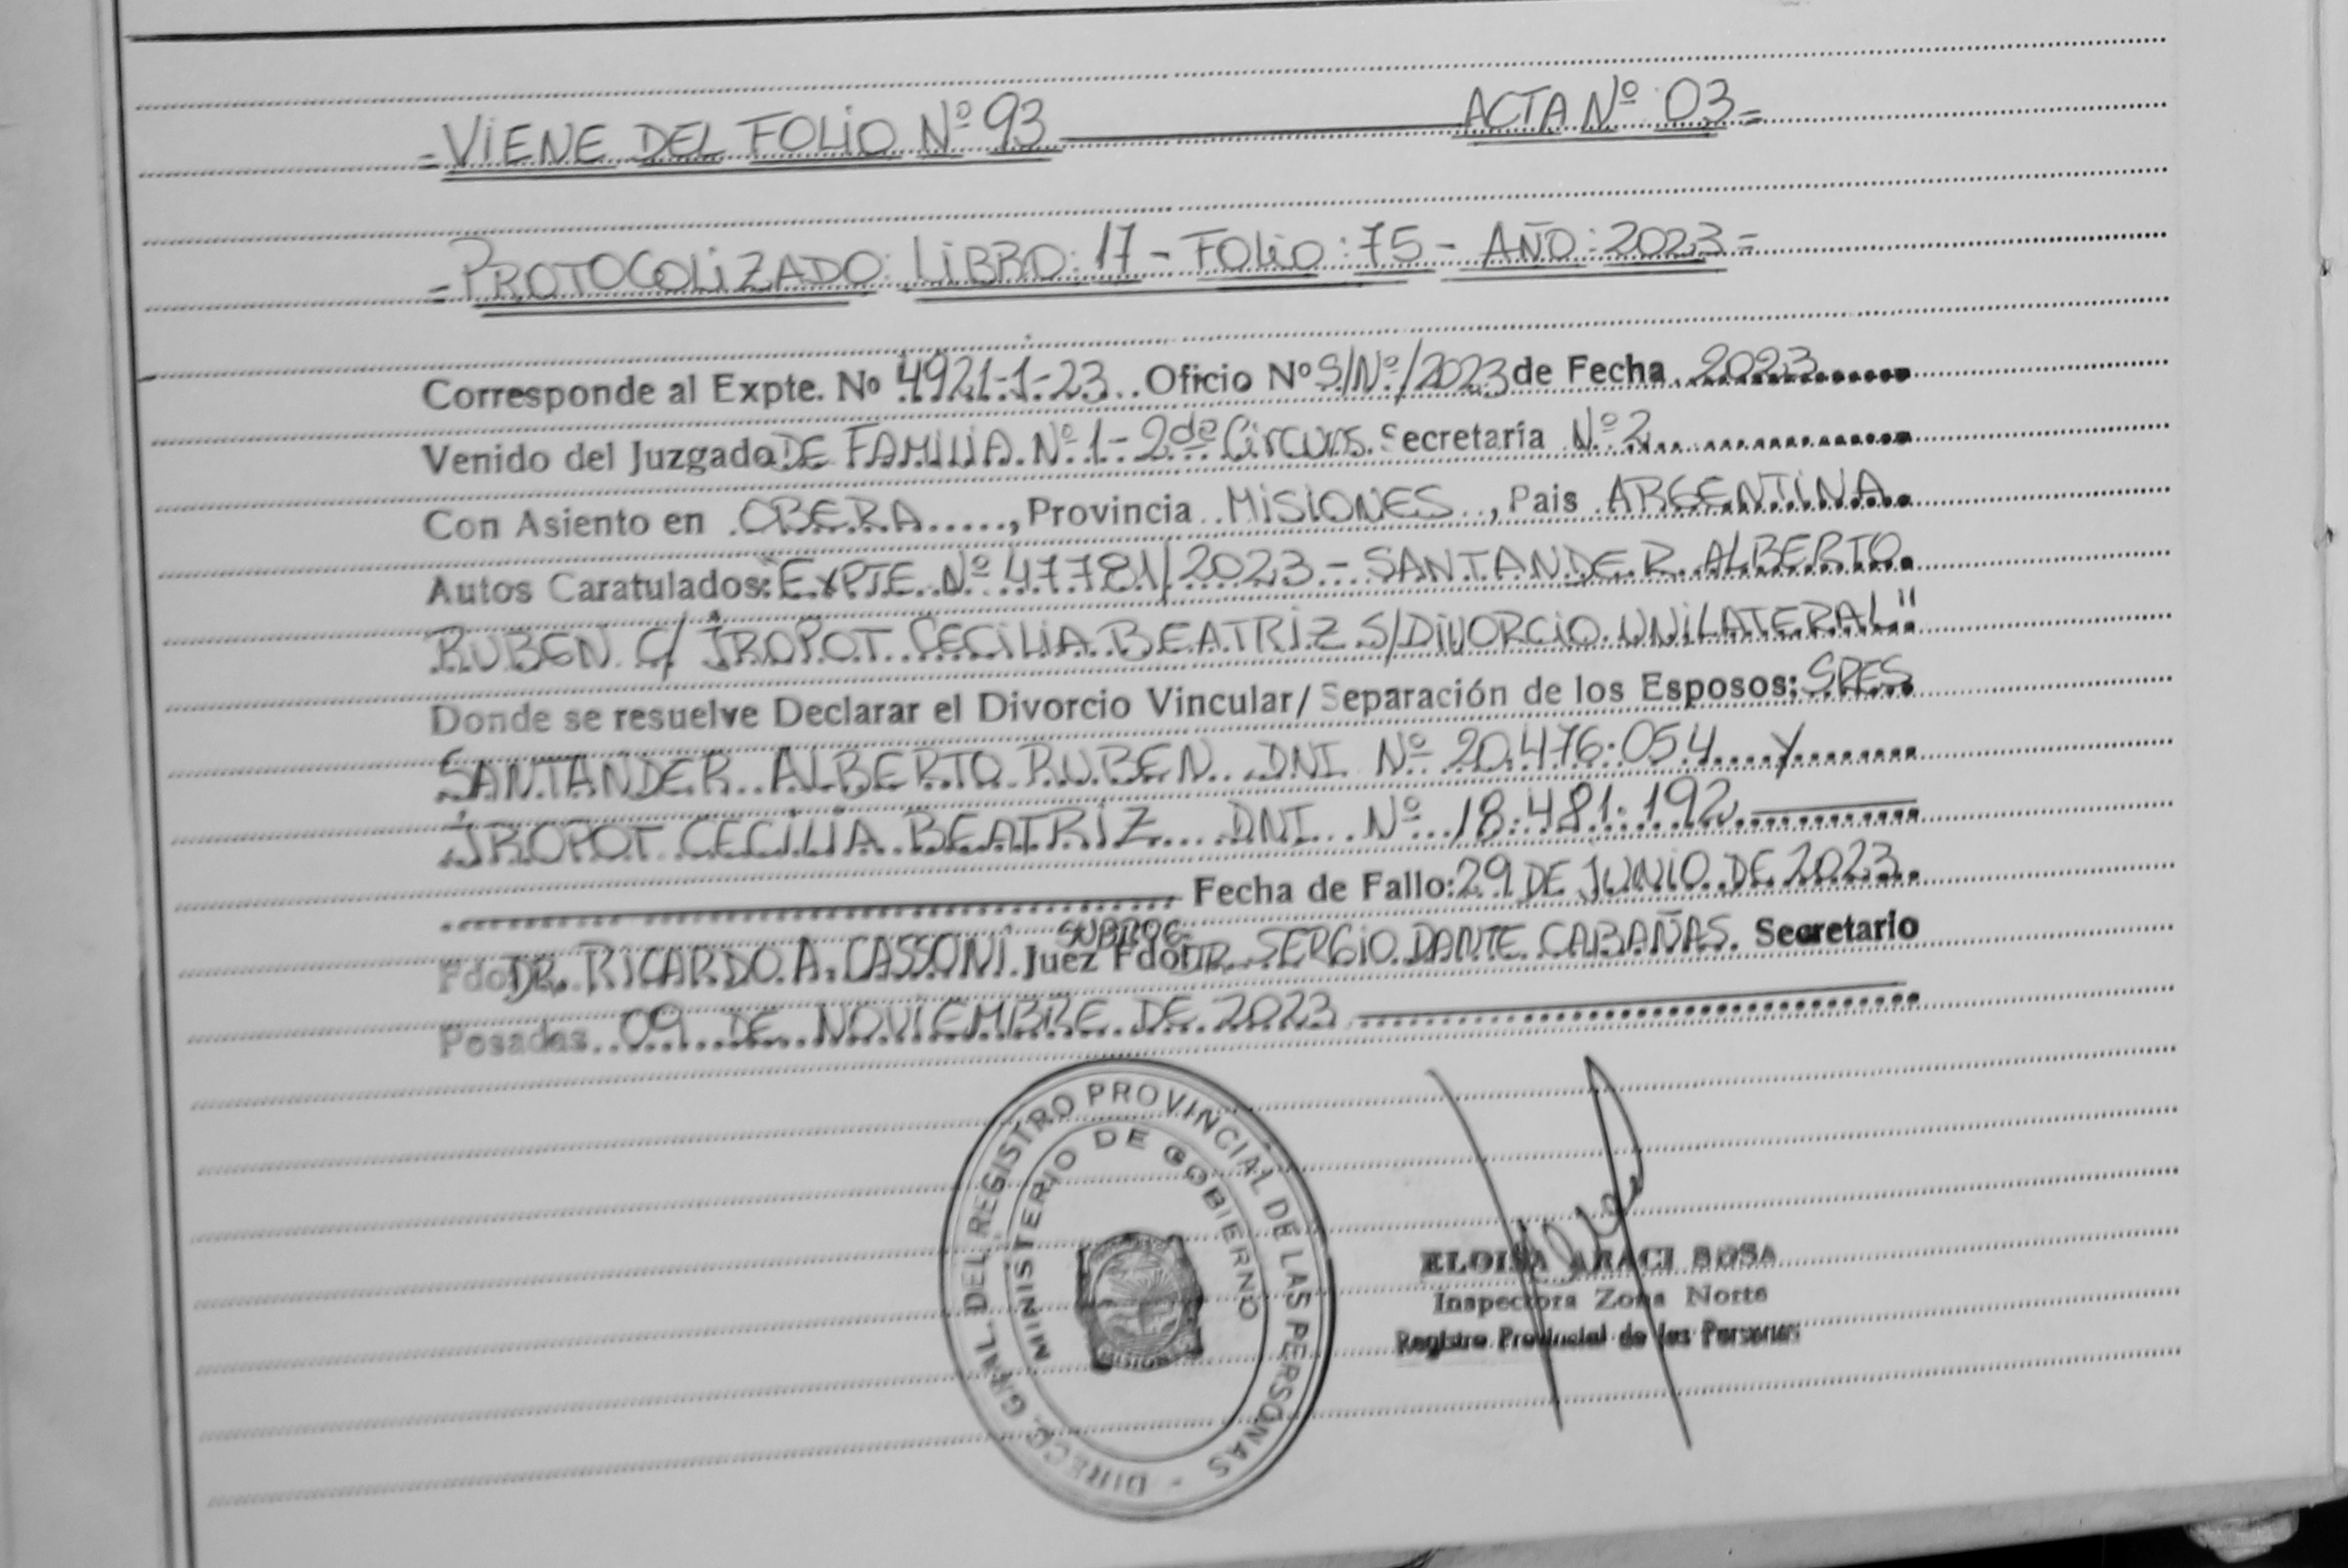 = VIENE DEL FOLIO Nº 93 ACTA Nº 03 =
= PROTOCOLIZADO: LIBRO: 17 - FOLIO: 75 - AÑO: 2023 =
Corresponde al Expte. Nº 4921-1-23 Oficio Nº S/Nº/2023 de Fecha 2023
Venido del Juzgado DE FAMILIA Nº 1 - 2da Circuns. Secretaría Nº 2
Con Asiento en OBERA, Provincia MISIONES, Pais ARGENTINA.
Autos Caratulados: "EXPTE Nº 47781/2023 - SANTANDER ALBERTO
RUBEN C/ IROPOT CECILIA BEATRIZ S/DIVORCIO UNILATERAL"
Donde se resuelve Declarar el Divorcio Vincular/ Separación de los Esposos: SRES
SANTANDER ALBERTO RUBEN DNI Nº 20.476.054 Y
IROPOT CECILIA BEATRIZ DNI Nº 18.481.192
Fecha de Fallo: 29 DE JUNIO DE 2023.
SUBROG.
Fdo DR. RICARDO A. CASSONI Juez Fdo: DR. SERGIO DANTE CABAÑAS. Secretario
Posadas 09 DE NOVIEMBRE DE 2023
DIRECC. GRAL. DEL REGISTRO PROVINCIAL DE LAS PERSONAS -
MINISTERIO DE GOBIERNO
MISIONES
ELOISA ARACI SOSA
Inspectora Zona Norte
Registro Provincial de las Personas